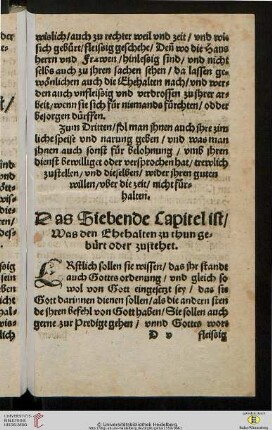 wislich/ auch zu rechter weil vnd zeit/ vnd wie
sich gebürt/ fleissig geschehe/ Deñ wo die Haus
herrn vnd Frawen/ hinlessig sind/ vnd nicht
selbs auch zu jhren sachen sehen/ da lassen ge-
wönlichen auch die Ehehalten nach/ vnd wer-
den auch vnfleissig vnd verdrossen zu jhrer ar-
beit/ wenn sie sich für niemands fürchten/ odder
besorgen dürffen.
Zum Dritten/ sol man jhnen auch jhre zim
liche speise vnd narung geben/ vnd was man
jhnen auch sonst für belohnung/ vmb jhren
dienst bewilliget oder versprochen hat/ trewlich
zustellen/ vnd dieselben/ wider jhren guten
willen/ vber die zeit/ nicht für-
halten.
Das Siebende Capitel ist/
Was den Ehehalten zu thun ge-
bürt oder zustehet.
ERstlich sollen sie wissen/ das jhr standt
auch Gottes ordenung/ vnd gleich so
wol von Gott eingesetzt sey/ das sie
Gott darinnen dienen sollen/ als die andern sten
de jhren befehl von Gott haben/ Sie sollen auch
gerne zur Predigt gehen/ vnnd Gottes wort
D v fleissig
© Universitätsbibliothek Heidelberg